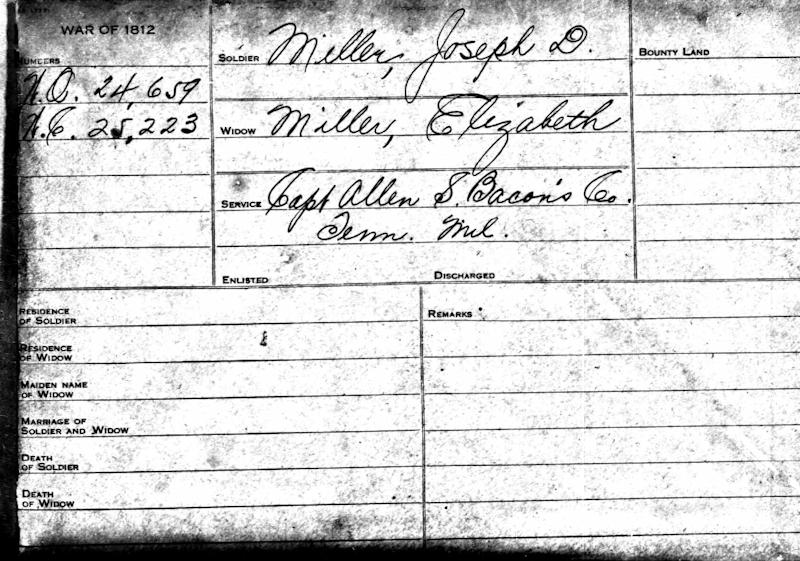 WAR OF 1812
NUMBERS
W.O. 24,659
W.C. 25,223
SOLDIER Miller, Joseph D.
WIDOW Miller, Elizabeth
SERVICE Capt Allen S. Bacon's Co.
Tenn. Mil.
ENLISTED DISCHARGED
BOUNTY LAND
RESIDENCE
OF SOLDIER
RESIDENCE
OF WIDOW
MAIDEN NAME
OF WIDOW
MARRIAGE OF
SOLDIER AND WIDOW
DEATH
OF SOLDIER
DEATH
OF WIDOW
REMARKS